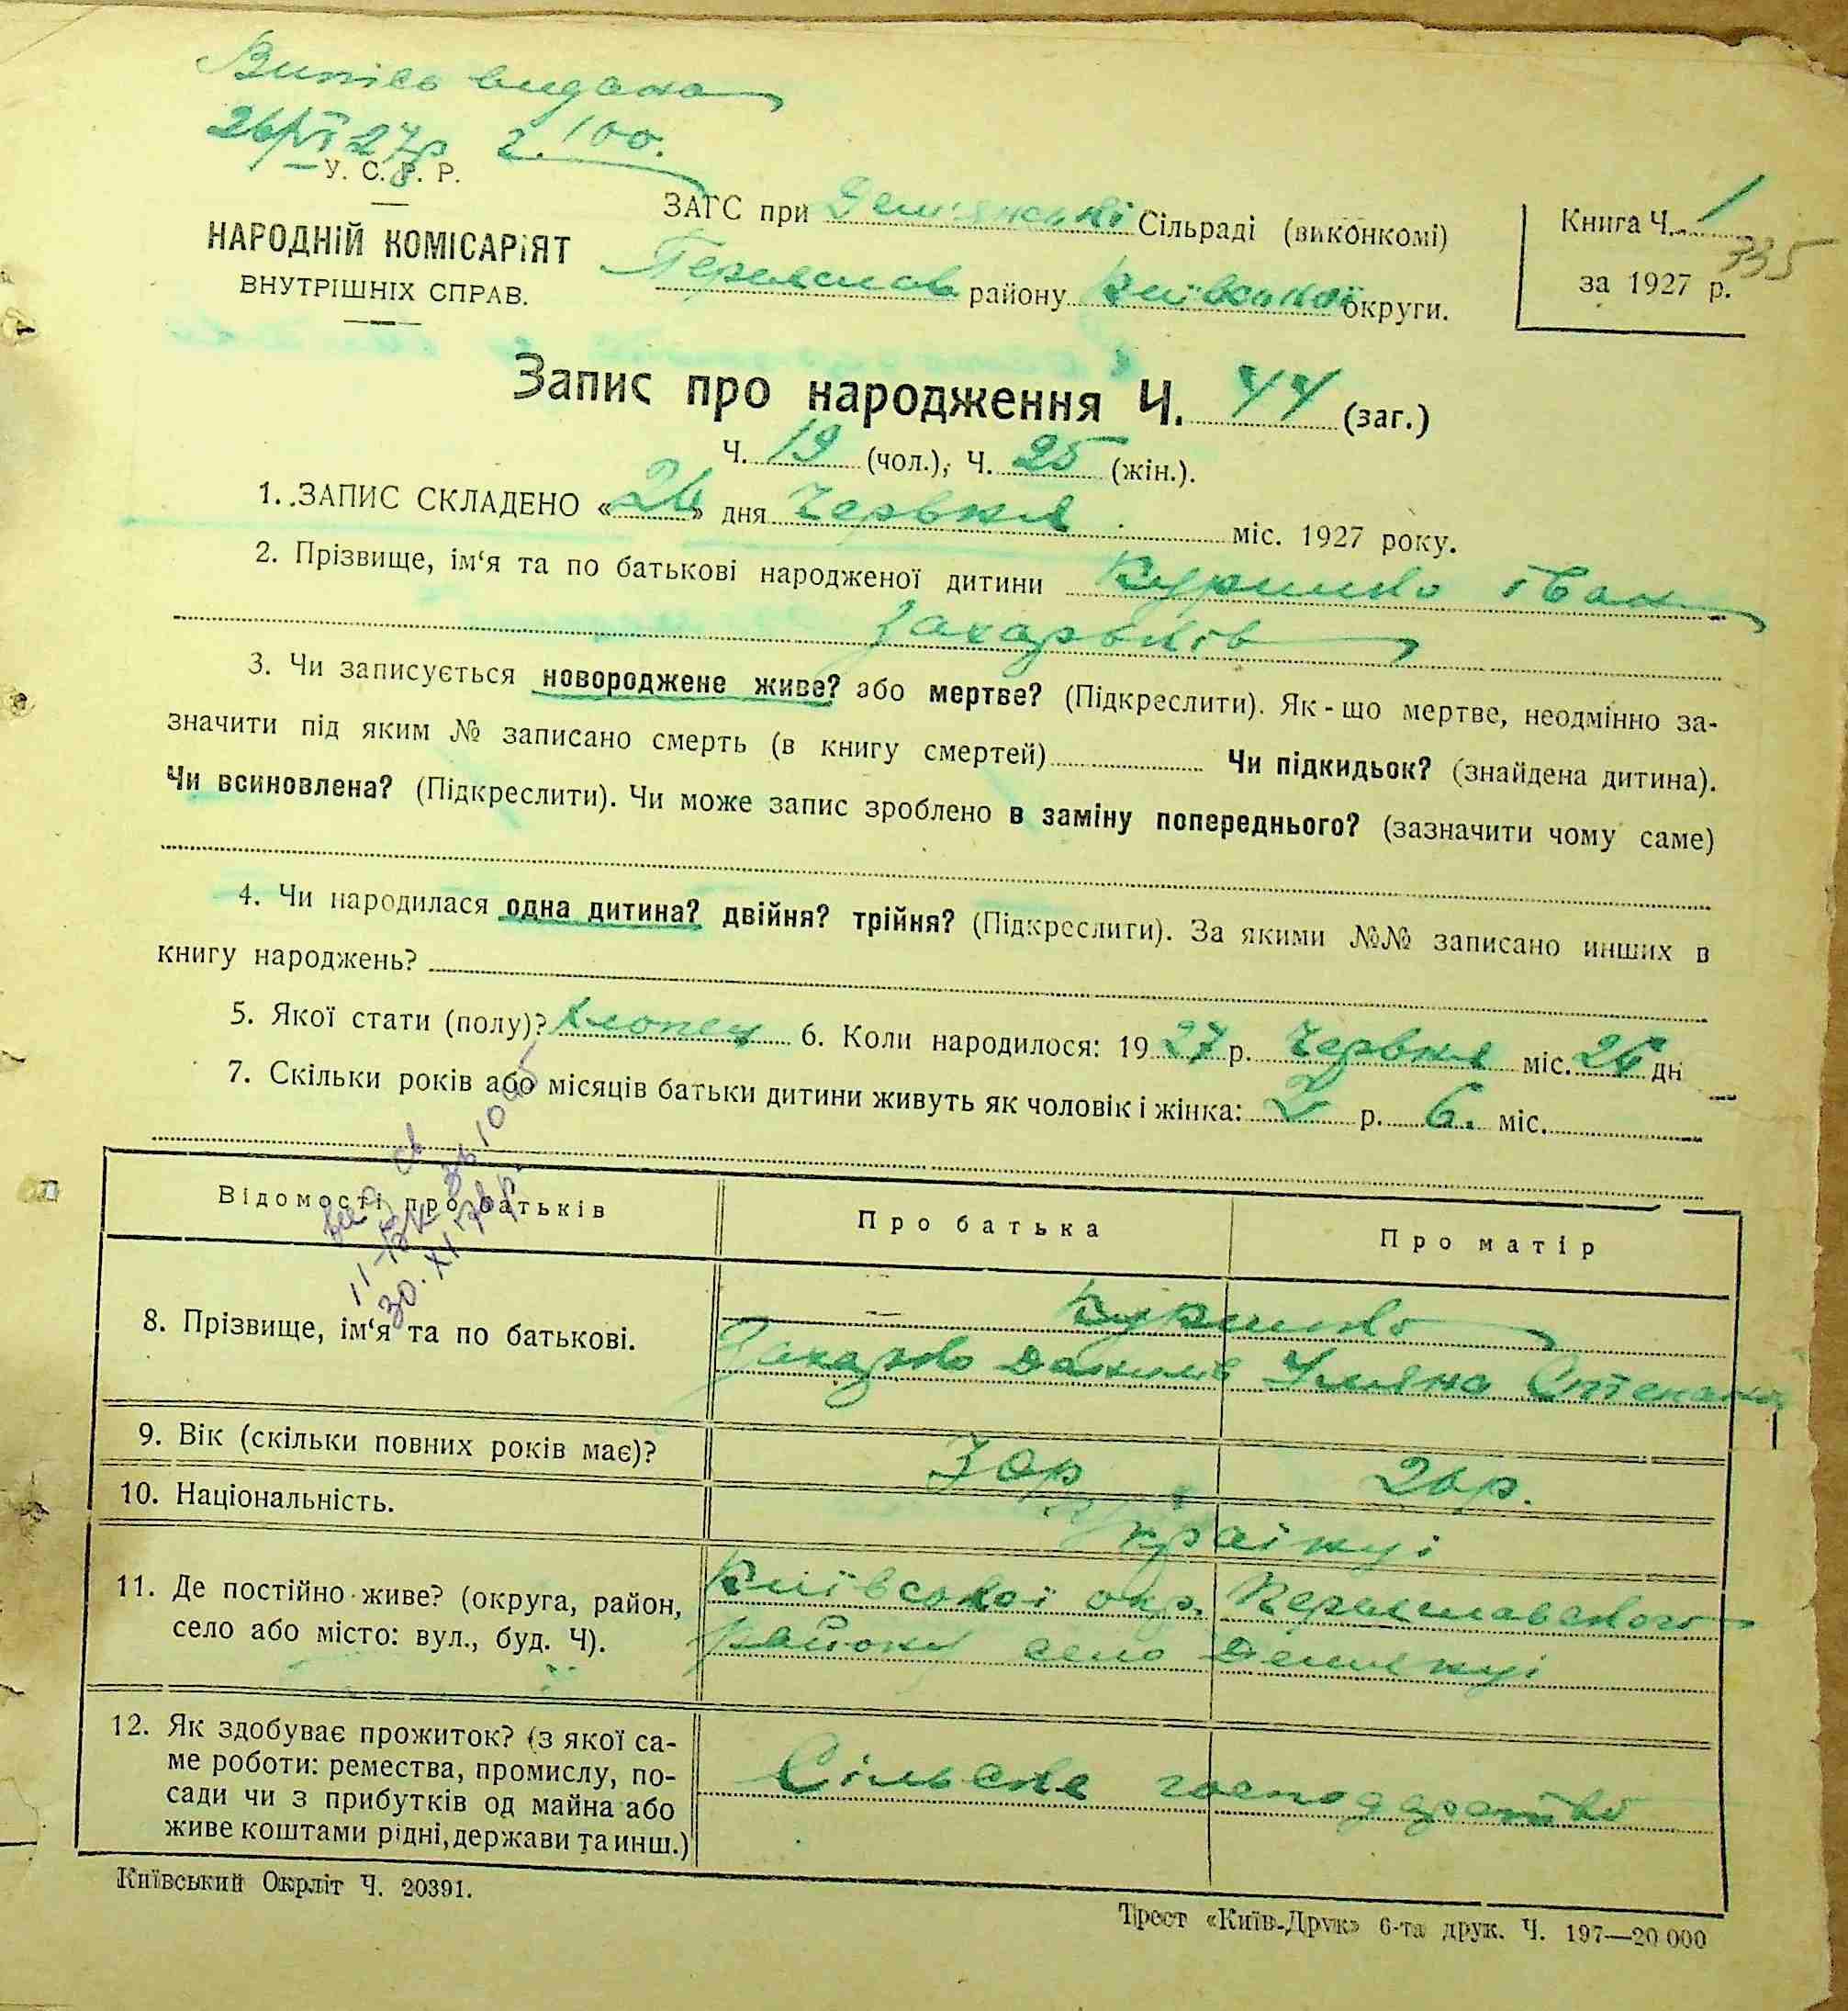 Випись видана
26/VI 27р 2. 100.
У. С. Р. Р.
НАРОДНІЙ КОМІСАРІЯТ
ВНУТРІШНІХ СПРАВ.
ЗАГС при Дем'янській Сільраді (виконкомі)
Переяслав району Київської округи.
Книга Ч. 1
335
за 1927 р.
Запис про народження Ч. 44 (заг.)
Ч. 19 (чол.), Ч. 25 (жін.).
1. ЗАПИС СКЛАДЕНО «26» дня Червня міс. 1927 року.
2. Прізвище, ім‘я та по батькові народженої дитини Куришко Іван
Захарьків
3. Чи записується новороджене живе? або мертве? (Підкреслити). Як-що мертве, неодмінно за-
значити під яким № записано смерть (в книгу смертей) Чи підкидьок? (знайдена дитина).
Чи всиновлена? (Підкреслити). Чи може запис зроблено в заміну попереднього? (зазначити чому саме)
4. Чи народилася одна дитина? двійня? трійня? (Підкреслити). За якими №№ записано инших в
книгу народжень?
5. Якої стати (полу)? Хлопец 6. Коли народилося: 1927 р. Червня міс. 26 дн
7. Скільки років або місяців батьки дитини живуть як чоловік і жінка: 2 р. 6. міс.
Відомості про батьків
Про батька
Про матір
30. XI
8. Прізвище, ім‘я та по батькові.
Куришко
Захарко Данилів Уляна Степанов
9. Вік (скільки повних років має)?
30р
26р.
10. Національність.
Українці
11. Де постійно живе? (округа, район,
село або місто: вул., буд. Ч).
Київської окр. Переяславского
району село Демянці
12. Як здобуває прожиток? (з якої са-
ме роботи: ремества, промислу, по-
сади чи з прибутків од майна або
живе коштами рідні, держави та инш.)
Сільське господарство
Київський Окрліт Ч. 20391.
Трест «Київ-Друк» 6-та друк. Ч. 197—20 000